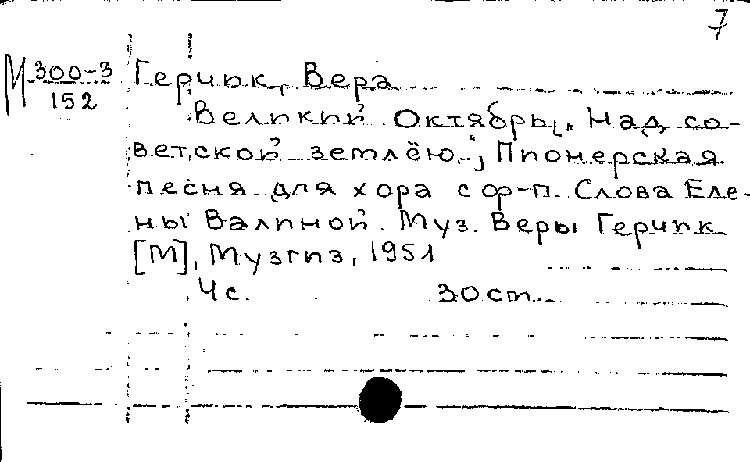 7
М 300-3 Герчик, Вера
152
Великий Октябрь „Над со-
ветской землёю“; Пионерская
песня для хора с ф-п. Слова Еле-
ны Валиной. Муз. Веры Герчик
[М], Музгиз, 1951
4 с. 30 ст.